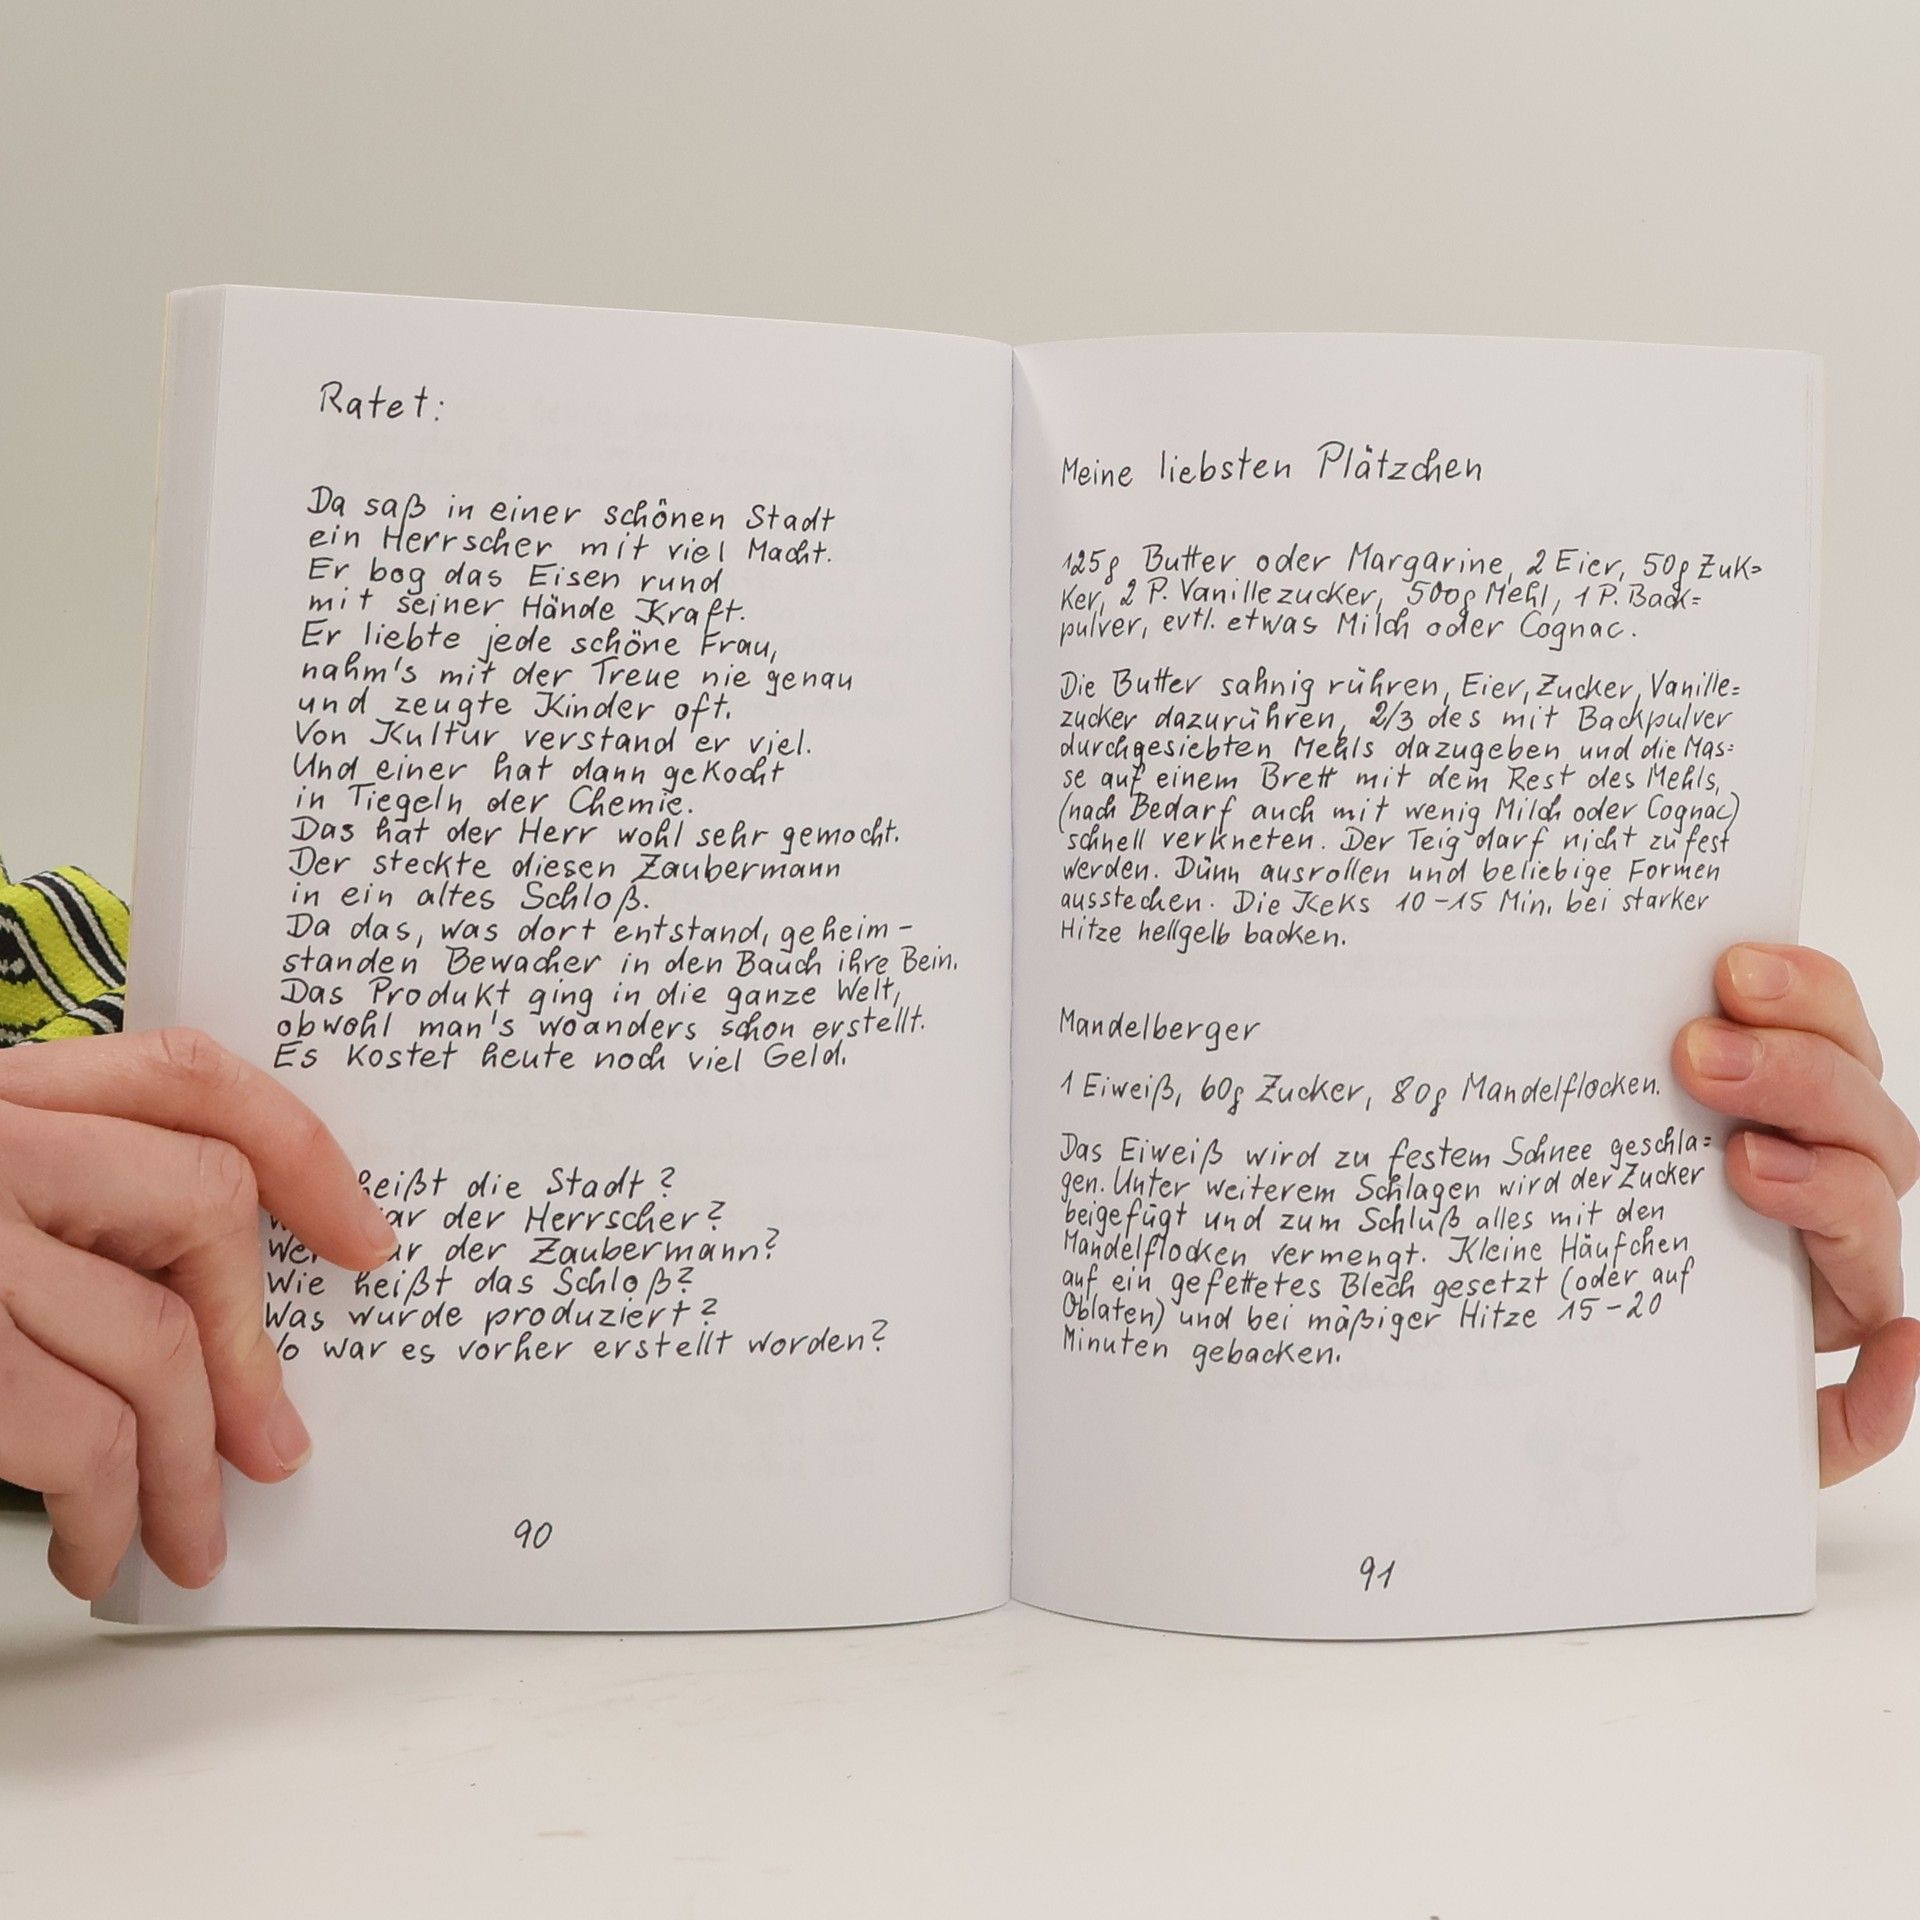 Ratet:
Da saß in einer schönen Stadt
ein Herrscher mit viel Macht.
Er bog das Eisen rund
mit seiner Hände Kraft.
Er liebte jede schöne Frau,
nahm's mit der Treue nie genau
und zeugte Kinder oft.
Von Kultur verstand er viel.
Und einer hat dann gekocht
in Tiegeln der Chemie.
Das hat der Herr wohl sehr gemocht.
Der steckte diesen Zaubermann
in ein altes Schloß.
Da das, was dort entstand, geheim-
standen Bewacher in den Bauch ihre Bein.
Das Produkt ging in die ganze Welt,
obwohl man's woanders schon erstellt.
Es kostet heute noch viel Geld.
heißt die Stadt?
der Herrscher?
der Zaubermann?
Wie heißt das Schloß?
Was wurde produziert?
war es vorher erstellt worden?
90
Meine liebsten Plätzchen
125g Butter oder Margarine, 2 Eier, 50g Zuk=
ker, 2 P. Vanillezucker, 500g Mehl, 1 P. Back=
pulver, evtl. etwas Milch oder Cognac.
Die Butter sahnig rühren, Eier, Zucker, Vanille=
zucker dazurühren, 2/3 des mit Backpulver
durchgesiebten Mehls dazugeben und die Mas=
se auf einem Brett mit dem Rest des Mehls,
(nach Bedarf auch mit wenig Milch oder Cognac)
schnell verkneten. Der Teig darf nicht zu fest
werden. Dünn ausrollen und beliebige Formen
ausstechen. Die Keks 10-15 Min. bei starker
Hitze hellgelb backen.
Mandelberger
1 Eiweiß, 60g Zucker, 80g Mandelflocken.
Das Eiweiß wird zu festem Schnee geschla=
gen. Unter weiterem Schlagen wird der Zucker
beigefügt und zum Schluß alles mit den
Mandelflocken vermengt. Kleine Häufchen
auf ein gefettetes Blech gesetzt (oder auf
Oblaten) und bei mäßiger Hitze 15-20
Minuten gebacken.
91